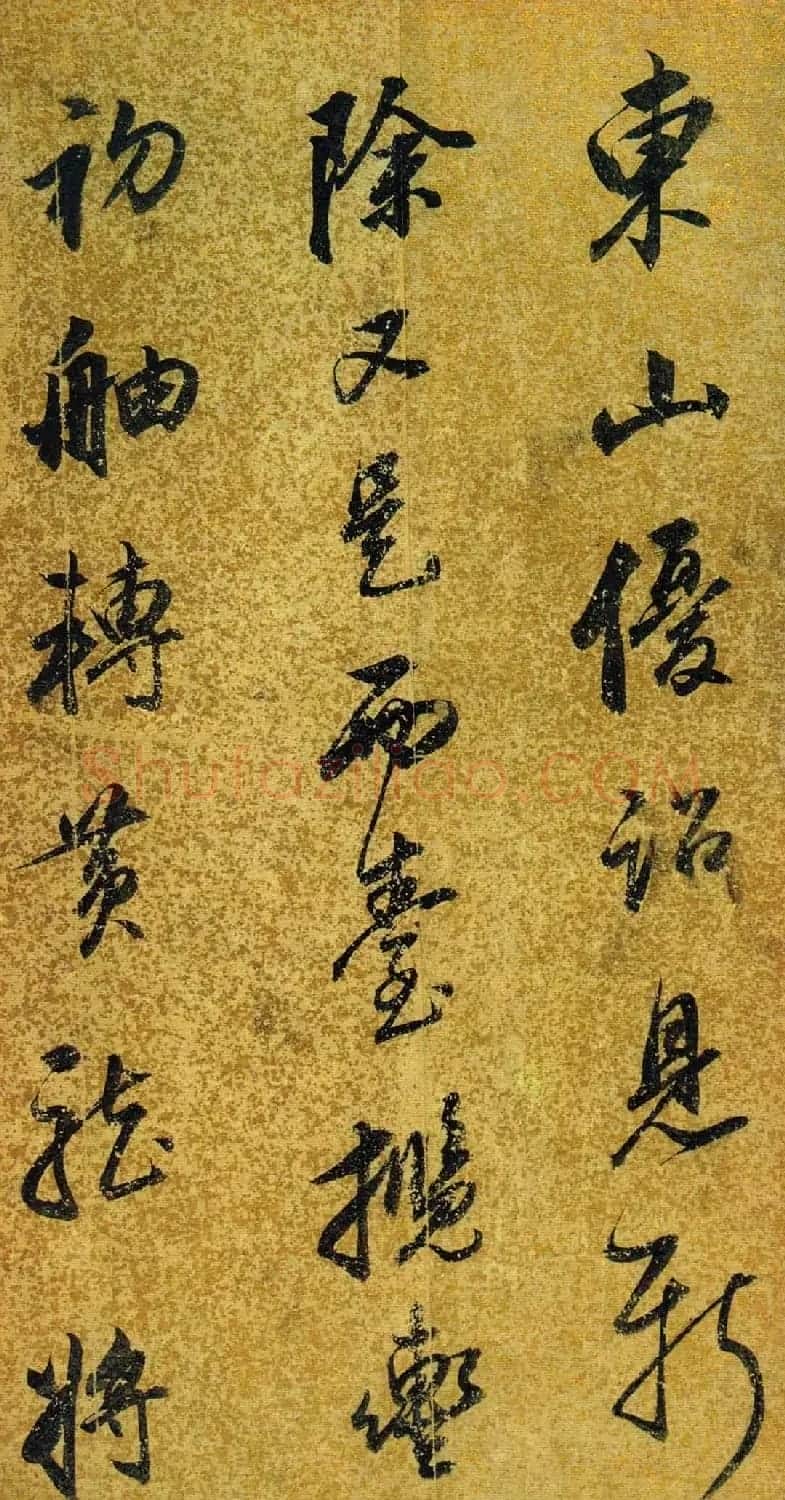 東山優詔見新
除又是西臺攬轡
初舳轉黃龍將
Shufaziliao.COM